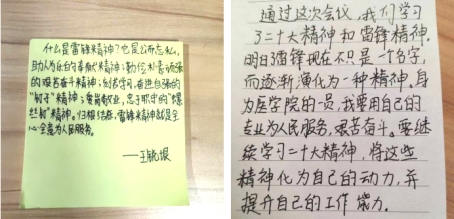 什么是雷锋精神?它是公而忘私,
助人为乐的奉献精神;勤俭朴素顽强
的艰苦奋斗精神;刻苦学习,奋进自强的
"钉子"精神;爱岗敬业,忠于职守的"螺
丝钉"精神。归根结底,雷锋精神就是全
心全意为人民服务。
——王
通过这次会议,我们学习
了二十大精神和雷锋精神。
明白雷锋现在不只是一个名字,
而逐渐演化为一种精神。身
为医学院的一员,我要用自己的
专业为人民服务,艰苦奋斗。要继
续学习二十大精神,将这些
精神化为自己的动力,并
提升自己的工作能力。